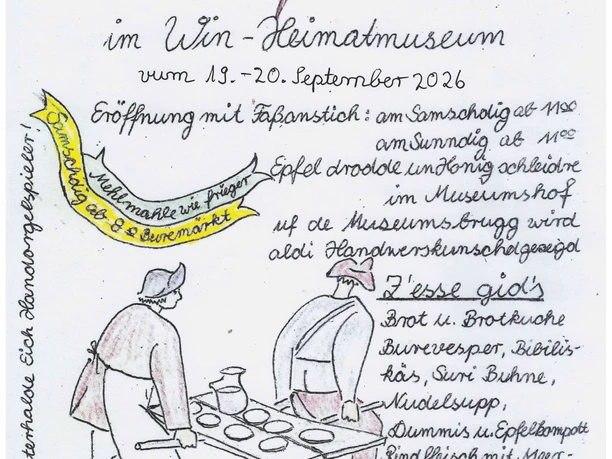 im Win-Heimatmuseum
vum 19.-20. September 2026
Eröffnung mit Faßanstich: am Samschdig ab 11⁰⁰
am Sunndig ab 11⁰⁰
Epfel drodde un Honig schleidre
im Museumshof
uf de Museumsbrugg wird
aldi Handwerskunschd gezeigd
Samschdig ab 8 e Buremärkt
Mehlmahle wie frieger
Z'esse gid's
Brot u. Brotkuche
Burevesper, Bibilis-
käs, Suri Buhne,
Nudelsupp,
Dummis u. Epfelkompott
Rindfleisch mit Meer-
terhalde Eich Handorgelspieler!